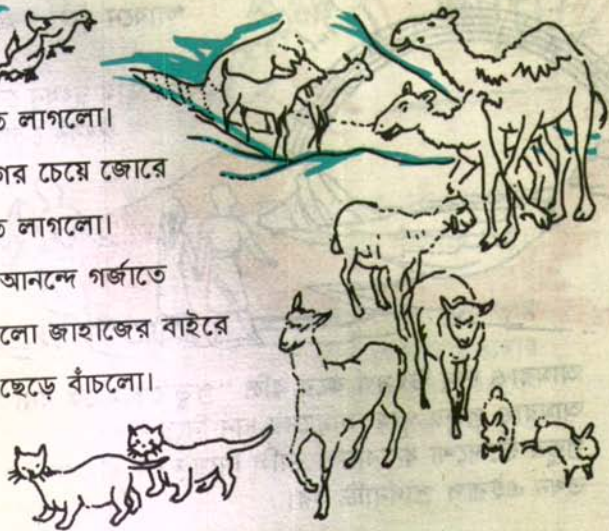 লাগলো।
চেয়ে জোরে
লাগলো।
আনন্দে গর্জাতে
লো জাহাজের বাইরে
ছেড়ে বাঁচলো।